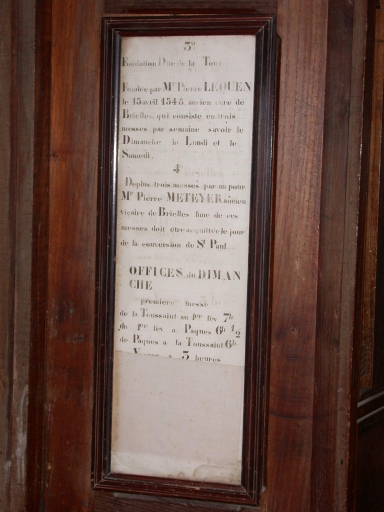 3º
Fondation Duc de la Tour
Fondée par Mr Pierre LEQUEN
le 15 avril 1545, ancien cure de
Brielles, qui consiste en trois
messes par semaine savoir le
Dimanche le Lundi et le
Samedi.
4
De plus trois messes par an pour
Mr Pierre METEYER ancien
vicaire de Brielles l'une de ces
messes doit être acquittée le jour
de la conversion de St Paul
OFFICES du DIMAN
CHE
première messe
de la Toussaint au 1er fév 7h
du 1er fév a Paques 6h 1/2
de Paques a la Toussaint 6h
3 heures